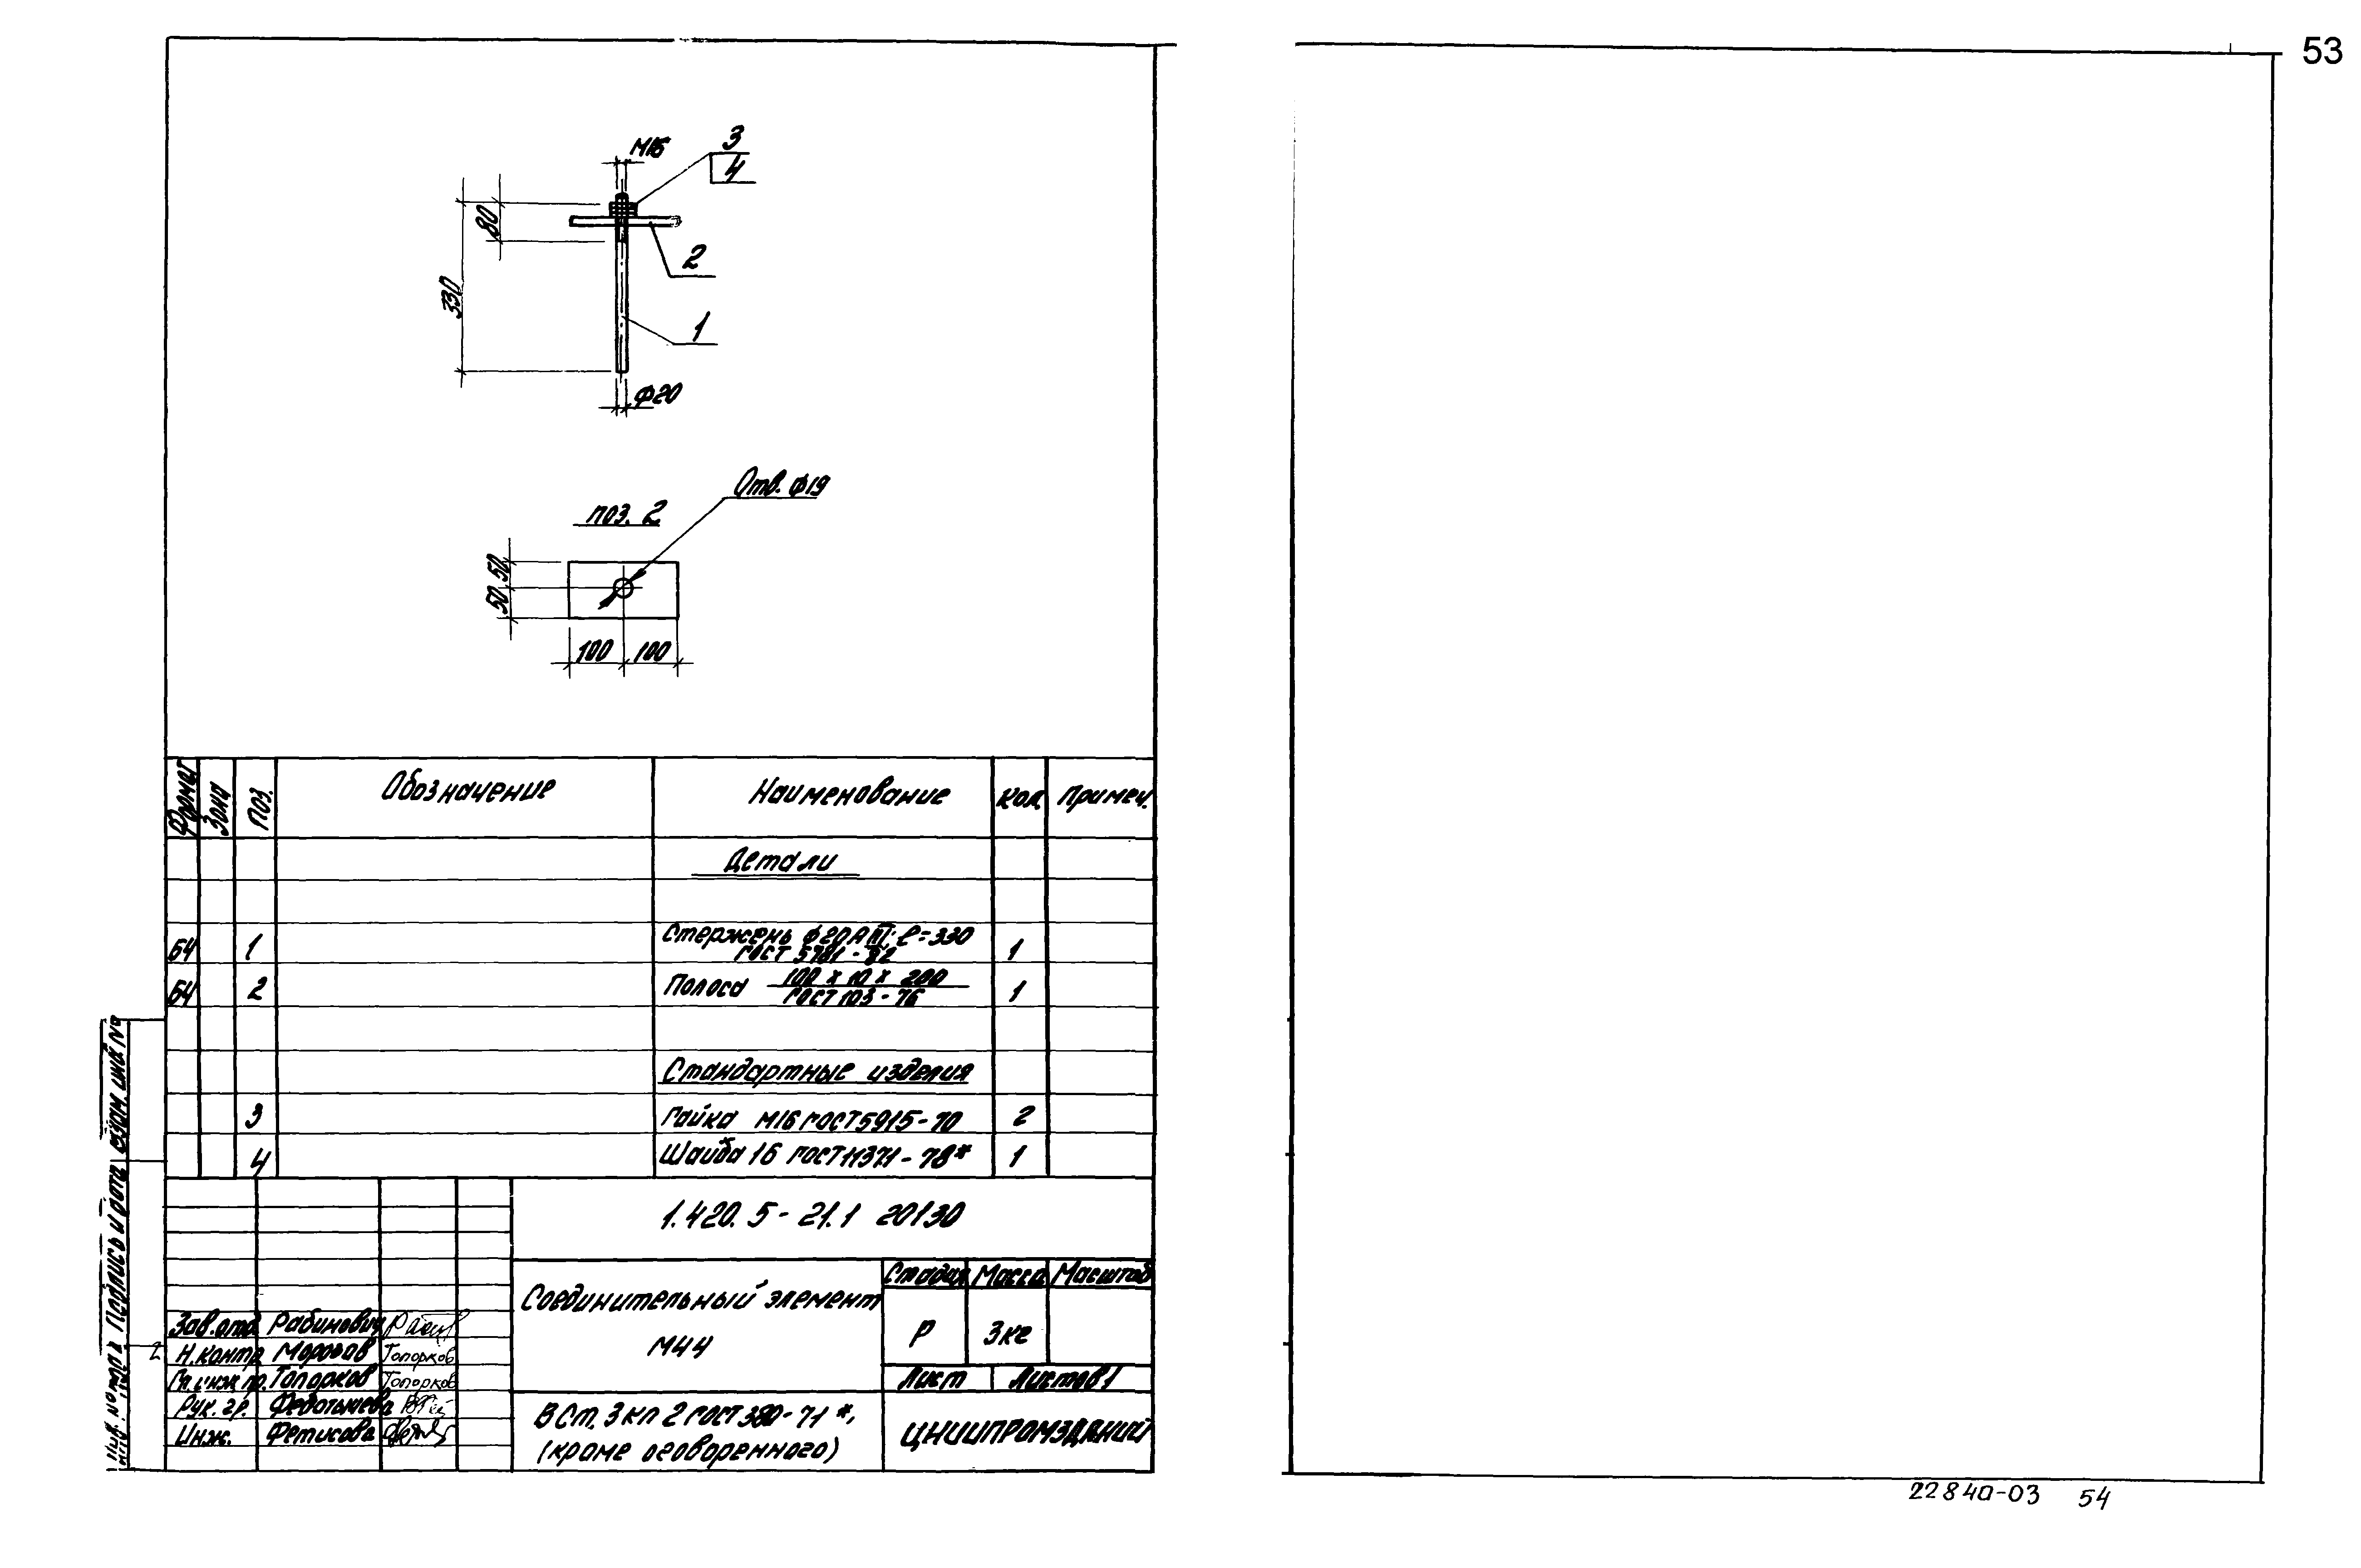 53
М16
3
4
80
330
2
1
ф20
Отв. ф19
поз. 2
50 50
100 100
Формат Зона Поз. Обозначение Наименование Кол. Примеч.
Детали
Б4 1 Стержень ф20АIII; ℓ=330 ГОСТ 5781-82 1
Б4 2 Полоса 100 х 10 х 200 ГОСТ 103-76 1
Стандартные изделия
3 Гайка М16 ГОСТ 5915-70 2
4 Шайба 16 ГОСТ 11371-78* 1
1.420.5-21.1 20130
Соединительный элемент
М44
Стадия Масса Масштаб
Р 3кг
Лист Листов 1
В Ст. 3 кп 2 ГОСТ 380-71*,
(кроме оговоренного)
ЦНИИПРОМЗДАНИЙ
Зав.отд Рабинович
Н.контр Морозов Топорков
Гл.инж.пр. Топорков Топорков
Рук. гр.
Инж. Фетисова
Инв. № подл Подпись и дата Взам. инв №
22840-03 54